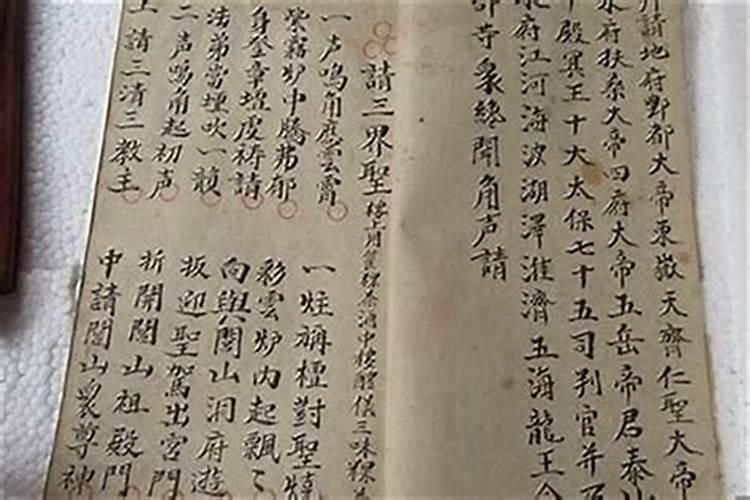 拜請地府酆都大帝東嶽天齊仁聖大帝
水府扶桑大帝四府大帝五岳帝君泰山
十殿冥王十大太保七十五司判官并乃
水府江河海波湖澤淮濟五海龍王
部寺眾絲聞角声請
請三界聖
一声鳴角應雲霄
紫霧炉中騰弗郁
身登章壇虔祷請
法弟當壇吹一
二声鳴角起初声
上請三清三教主
一炷稱檀對聖燒
彩雲炉内起飄〻
向與閭山洞府遊
扳迎聖駕出宮門
折開閭山祖殿門
中請閭山眾尊神